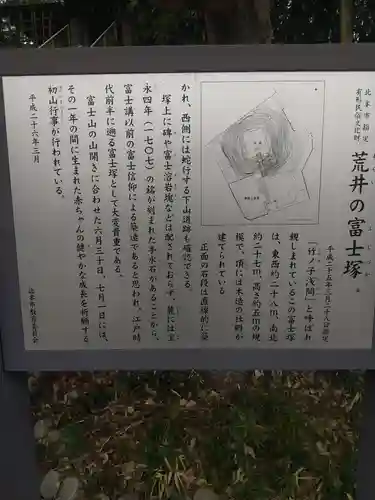 北本市指定
有形民俗文化財
荒井の富士塚
平成二十五年三月二十八日指定
「竹ノ子浅間」と呼ばれ
親しまれているこの富士塚
は、東西約二十八m、南北
約二十七m、高さ約五mの規
模で、頂には木造の社殿が
建てられている
正面の石段は直線的に築
かれ、西側には蛇行する下山道跡も確認できる。
塚上に碑や富士溶岩塊などは配されておらず、麓には宝
永四年(一七〇七)の銘が刻まれた手水石があることから、
富士講以前の富士信仰による築造であると思われ、江戸時
代前半に遡る富士塚として大変貴重である。
富士山の山開きに合わせた六月三十日、七月一日には、
その一年の間に生まれた赤ちゃんの健やかな成長を祈願する
初山行事が行われている。
平成二十六年三月
北本市教育委員会